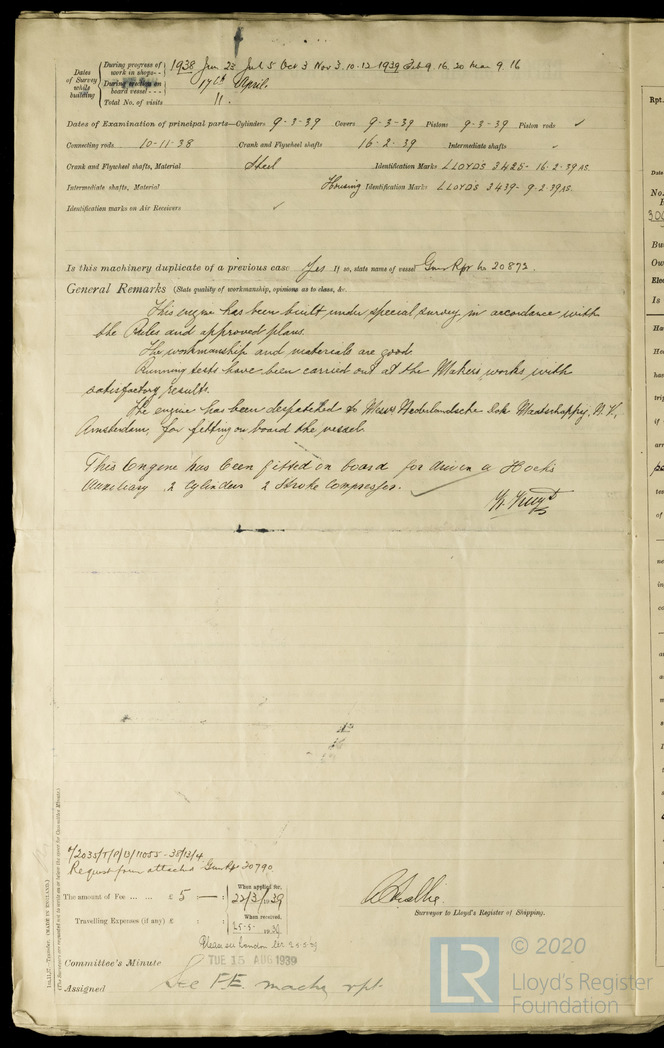 Dates of Survey while building
During progress of work in shops - - 1938 Jun 23 Jul 5 Oct 3 Nov 3. 10. 12. 1939 Feb 9. 16. 20 Mar 9. 16
During erection on board vessel - - - 17th April.
Total No. of visits 11.
Dates of Examination of principal parts—Cylinders 9-3-39 Covers 9-3-39 Pistons 9-3-39 Piston rods ✓
Connecting rods 10-11-38 Crank and Flywheel shafts 16-2-39 Intermediate shafts
Crank and Flywheel shafts, Material Steel Identification Marks LLOYDS 2425- 16-2-39 AS.
Intermediate shafts, Material Housing Identification Marks LLOYDS 2439- 9-2-39 AS.
Identification marks on Air Receivers ✓
Is this machinery duplicate of a previous case Yes If so, state name of vessel Gms Rpt No 20872.
General Remarks (State quality of workmanship, opinions as to class, &c.
This engine has been built under special survey in accordance with
the Rules and approved plans.
The workmanship and materials are good.
Running tests have been carried out at the Makers works with
satisfactory results.
The engine has been despatched to Messrs Nederlandsche Dok Maatschappy, N.V.,
Amsterdam, for fitting on board the vessel.
This Engine has been fitted on board for driven a
Auxiliary 2 Cylinders 2 Stroke Compressor.
Request form attached Gms Rpt 20790
The amount of Fee ... ... £ 5 : — :
When applied for, 22/3/1939
Travelling Expenses (if any) £ : :
When received, 25-5- 1939
Surveyor to Lloyd's Register of Shipping.
Committee's Minute TUE 15 AUG 1939
Assigned See F.E. machy rpt.
1m.11.37—Transfer. (MADE IN ENGLAND.)
(The Surveyors are requested not to write on or below the space for Committee's Minute.)
Rpt.
LR
© 2020
Lloyd's Register
Foundation